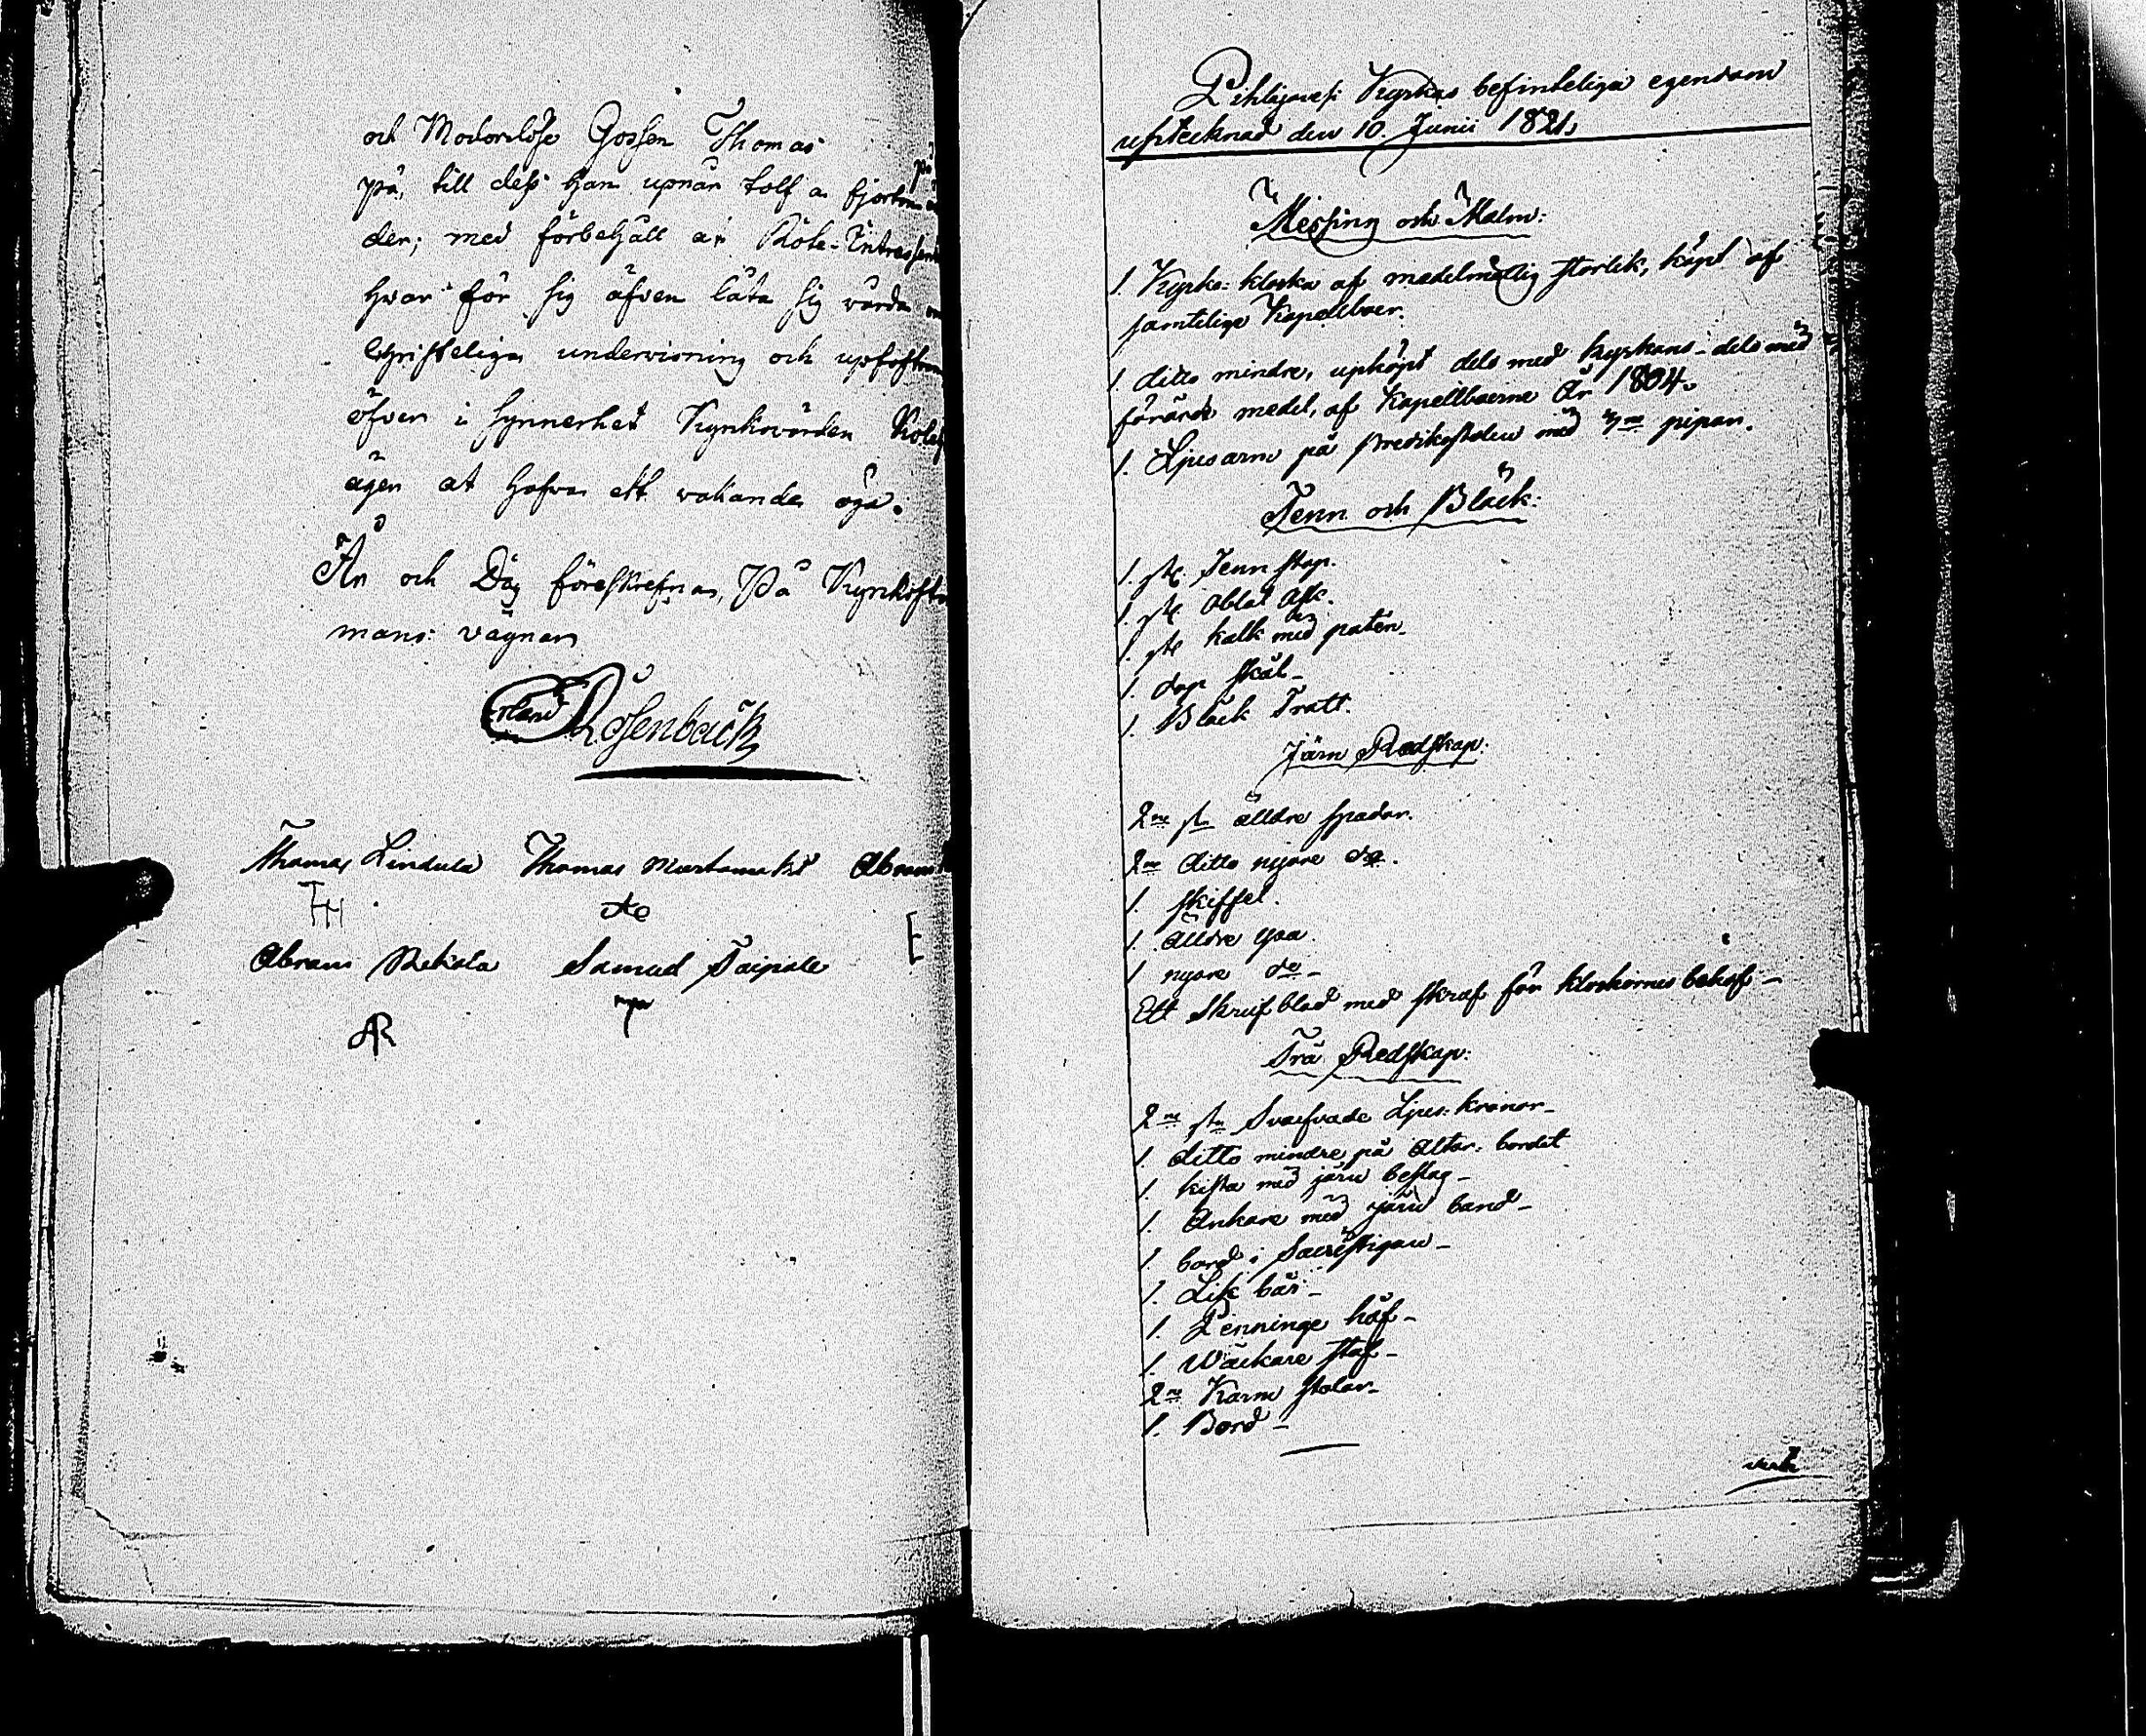 och Moderlöse Gossen Thomas
på
på, till dess han upnår tolf a fjorton
der; med förbehåll at Rote-Intressen
hvar för sig äfven låta sig vårda
Christeliga undervisning och upfostran
öfver i synnerhet Kyrkovärden
ägen at hafva ett vakande öga.
År och Dag föreskrefna, På Kyrko
mans: vägnar
Erland Rosenback
Thomas Lindula Thomas Abram
TH
Abram Rekola Samuel Taipale
AR
Pihlajavesi Kyrkas befinteliga egendom
upstecknad den 10. Junii 1821.
Messing och Malm:
1. Kyrko: klocka af medelmåttig storlek, köpt af
samtelige Kapellboer.
1. ditto mindre, upköpt dels med kyrkans - dels med
förärde medel, af Kapellboerne År 1804.
1. Ljusarm på Predikostolen med pipor.
Tenn och Bläck:
1. st. Tenn stop.
1. st. Oblat Ask.
1. st. kalk med paten -
1. dop skål -
1. Bläck Tratt.
Järn Redskap:
2ne st. älldre spador.
2ne ditto nyare do.
1. skiffel.
1. älldre
1 nyare do -
Ett Skruf blad med skruf för klockornes behof -
Trä Redskap:
2ne st. Svarfvade Ljus: kronor -
1. ditto mindre på Altar: bordet
1. kista med järn beslag -
1. Ankare med järn band -
1. bord i Sacristigan -
1. Lik bår -
1. Penninge håf -
1. Wäckare staf -
2ne Karm stolar -
1. Bord -